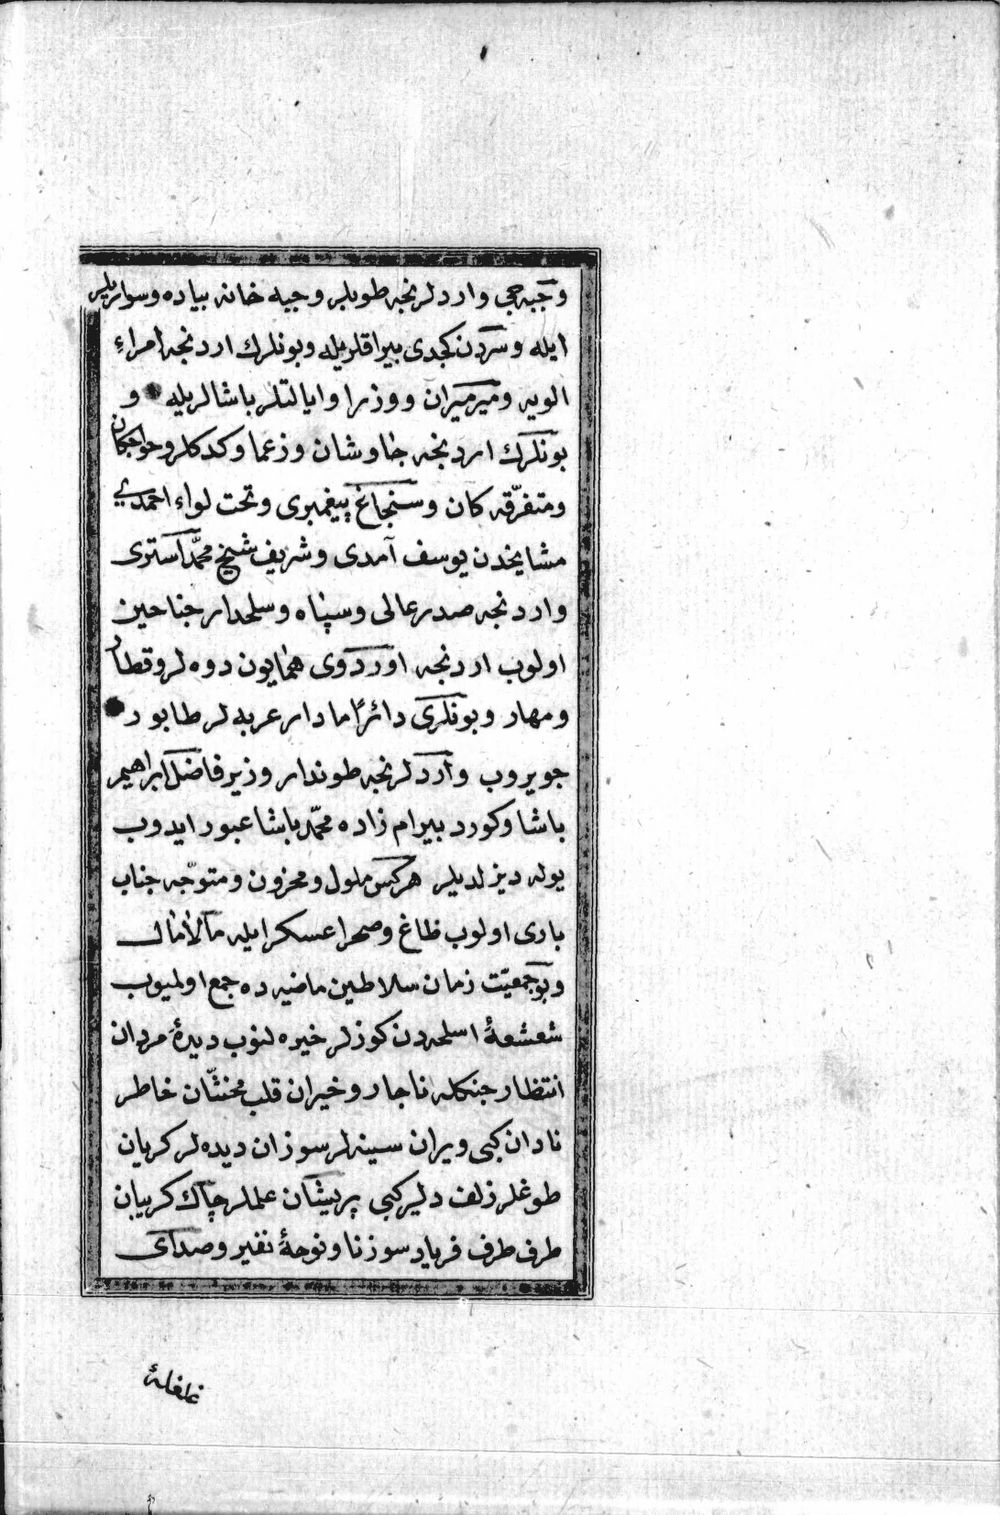 وجبه جی وارد لرنجه طوپلر وجبه خانه پیاده وسواریلر
ایله وسردن کچدی بیراقلریله وبونلرك اردنجه امراءِ
الویه ومیرمیران ووزرا وایالتلر پاشالریله و
بونلرك اردنجه چاوشان وزعما وکدکلر وخواجکان
ومتفرّقه کان وسنجاغ پیغمبری وتحت لواء احمدی
مشایخدن یوسف آمدی وشریف شیخ محمّد استری
واردنجه صدر عالی وسپاه وسلحدار جناحین
اولوب اردنجه اوردوی همایون دوه لر وقطار
ومهار وبونلری دائراً مادار عربه لر طابور
چویروب وآردلرنجه طوندار وزیر فاضل ابراهیم
پاشا وکورد بیرام زاده محمّد پاشا عبور ایدوب
یوله دیزلدیلر هرکس ملول ومحزون ومتوجّه جناب
باری اولوب طاغ وصحرا عسکر ایله مالامال
وبو جمعیّت زمان سلاطین ماضیه ده جمع اولمیوب
شعشعهٔ اسلحه دن کوزلر خیره لنوب دیدهٔ مردان
انتظار جنکله ناچار وخیران قلب مخنثّان خاطر
نادان کبی ویران سینه لر سوزان دیده لر کریان
طوغلر زلف دلبر کبی پریشان علملر چاك کریبان
طرف طرف فریاد سوزنا ونوحهٔ نفیر وصدای
غلغلهٔ